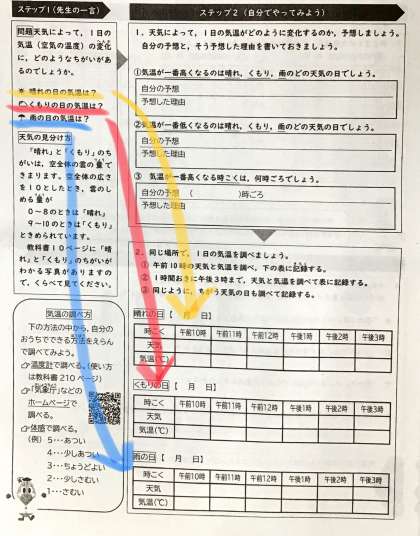 ステップ1(先生の一言)
問題 天気によって,1日の
気温(空気の温度)の変化
に,どのようなちがいがあ
るのでしょうか。
☀ 晴れの日の気温は?
くもりの日の気温は?
☂ 雨の日の気温は?
天気の見分け方
「晴れ」と「くもり」のち
がいは,空全体の雲の量で
きまります。空全体の広さ
を10としたとき,雲のし
める量が
0~8のときは「晴れ」
9~10のときは「くもり」
ときめられています。
教科書10ページに「晴
れ」と「くもり」のちがいが
わかる写真がありますの
で,くらべて見てください。
気温の調べ方
下の方法の中から,自分の
おうちでできる方法をえらん
で調べてみよう。
☞温度計で調べる。(使い方
は教科書210ページ)
☞「気象庁」などの
ホームページで
調べる。
☞体感で調べる。
(例)5…あつい
4…少しあつい
3…ちょうどよい
2…少しさむい
1…さむい
ステップ2(自分でやってみよう)
1.天気によって,1日の気温がどのように変化するのか,予想しましょう。
自分の予想と,そう予想した理由を書いておきましょう。
①気温が一番高くなるのは晴れ,くもり,雨のどの天気の日でしょう。
自分の予想
予想した理由
②気温が一番低くなるのは晴れ,くもり,雨のどの天気の日でしょう。
自分の予想
予想した理由
③ 気温が一番高くなる時こくは,何時ごろでしょう。
自分の予想 ( )時ごろ
予想した理由
2.同じ場所で,1日の気温を調べましょう。
① 午前10時の天気と気温を調べ,下の表に記録する。
② 1時間おきに午後3時まで,天気と気温を調べて表に記録する。
③ 同じように,ちがう天気の日も調べて記録する。
晴れの日【 月 日】
時こく 午前10時 午前11時 午前12時 午後1時 午後2時 午後3時
天気
気温(℃)
くもりの日【 月 日】
時こく 午前10時 午前11時 午前12時 午後1時 午後2時 午後3時
天気
気温(℃)
雨の日【 月 日】
時こく 午前10時 午前11時 午前12時 午後1時 午後2時 午後3時
天気
気温(℃)